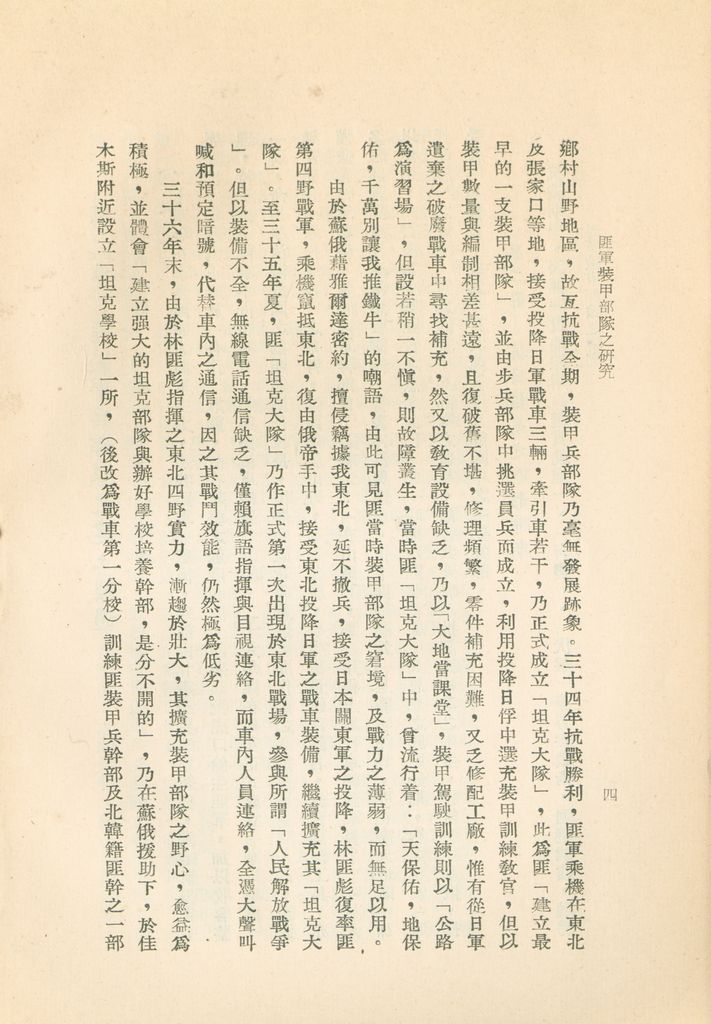 匪軍裝甲部隊之研究
四
鄉村山野地區，故亙抗戰全期，裝甲兵部隊乃毫無發展跡象。三十四年抗戰勝利，匪軍乘機在東北
及張家口等地，接受投降日軍戰車三輛，牽引車若干，乃正式成立「坦克大隊」，此爲匪「建立最
早的一支裝甲部隊」，並由步兵部隊中挑選員兵而成立，利用投降日俘中選充裝甲訓練教官，但以
裝甲數量與編制相差甚遠，且復破舊不堪，修理頻繁，零件補充困難，又乏修配工廠，惟有從日軍
遺棄之破廢戰車中尋找補充，然又以敎育設備缺乏，乃以「大地當課堂」，裝甲駕駛訓練則以「公路
爲演習場」，但設若稍一不愼，則故障叢生，當時匪「坦克大隊」中，曾流行着：「天保佑，地保
佑，千萬別讓我推鐵牛」的嘲語，由此可見匪當時裝甲部隊之窘境，及戰力之薄弱，而無足以用。
由於蘇俄藉雅爾達密約，擅侵竊據我東北，延不撤兵，接受日本關東軍之投降，林匪彪復率匪
第四野戰軍，乘機竄抵東北，復由俄帝手中，接受東北投降日軍之戰車裝備，繼續擴充其「坦克大
隊」。至三十五年夏，匪「坦克大隊」乃作正式第一次出現於東北戰場，參與所謂「人民解放戰爭
」。但以裝備不全，無線電話通信缺乏，僅賴旗語指揮與目視連絡，而車內人員連絡，全憑大聲叫
喊和預定暗號，代替車內之通信，因之其戰鬥效能，仍然極爲低劣。
三十六年末，由於林匪彪指揮之東北四野實力，漸趨於壯大，其擴充裝甲部隊之野心，愈益爲
積極，並體會「建立强大的坦克部隊與辦好學校培養幹部，是分不開的」，乃在蘇俄援助下，於佳
木斯附近設立「坦克學校」一所，（後改爲戰車第一分校）訓練匪裝甲兵幹部及北韓籍匪幹之一部